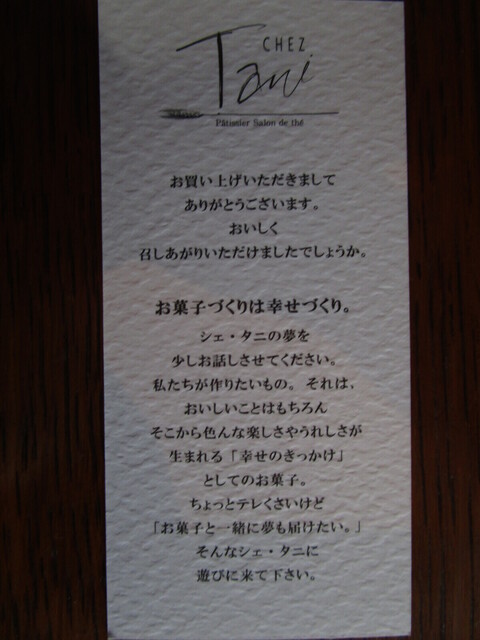 CHEZ
Tani
Pâtissier Salon de thé
お買い上げいただきまして
ありがとうございます。
おいしく
召しあがりいただけましたでしょうか。
お菓子づくりは幸せづくり。
シェ・タニの夢を
少しお話しさせてください。
私たちが作りたいもの。それは、
おいしいことはもちろん
そこから色んな楽しさやうれしさが
生まれる「幸せのきっかけ」
としてのお菓子。
ちょっとテレくさいけど
「お菓子と一緒に夢も届けたい。」
そんなシェ・タニに
遊びに来て下さい。